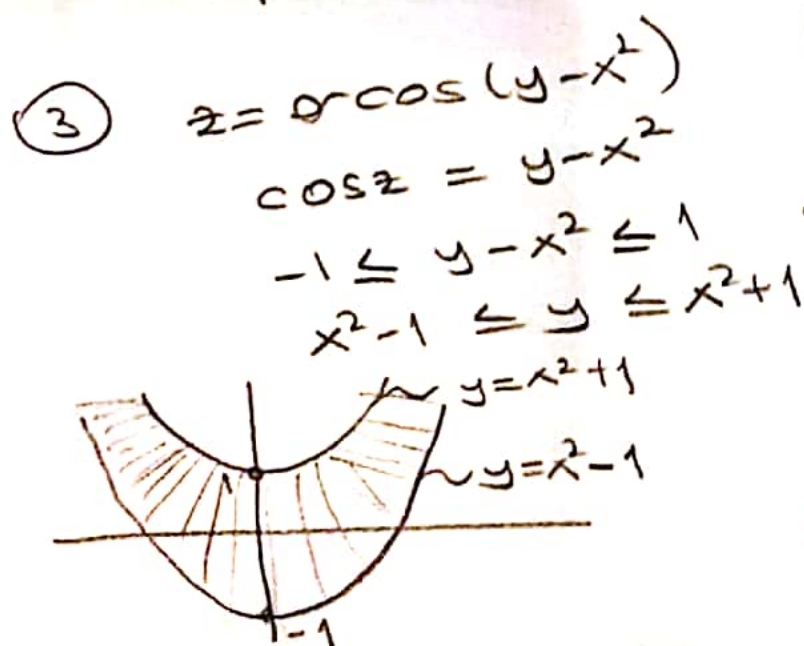 ③ z = arccos(y-x²)
cosz = y-x²
-1 ≤ y-x² ≤ 1
x²-1 ≤ y ≤ x²+1
y=x²+1
y=x²-1
1
-1